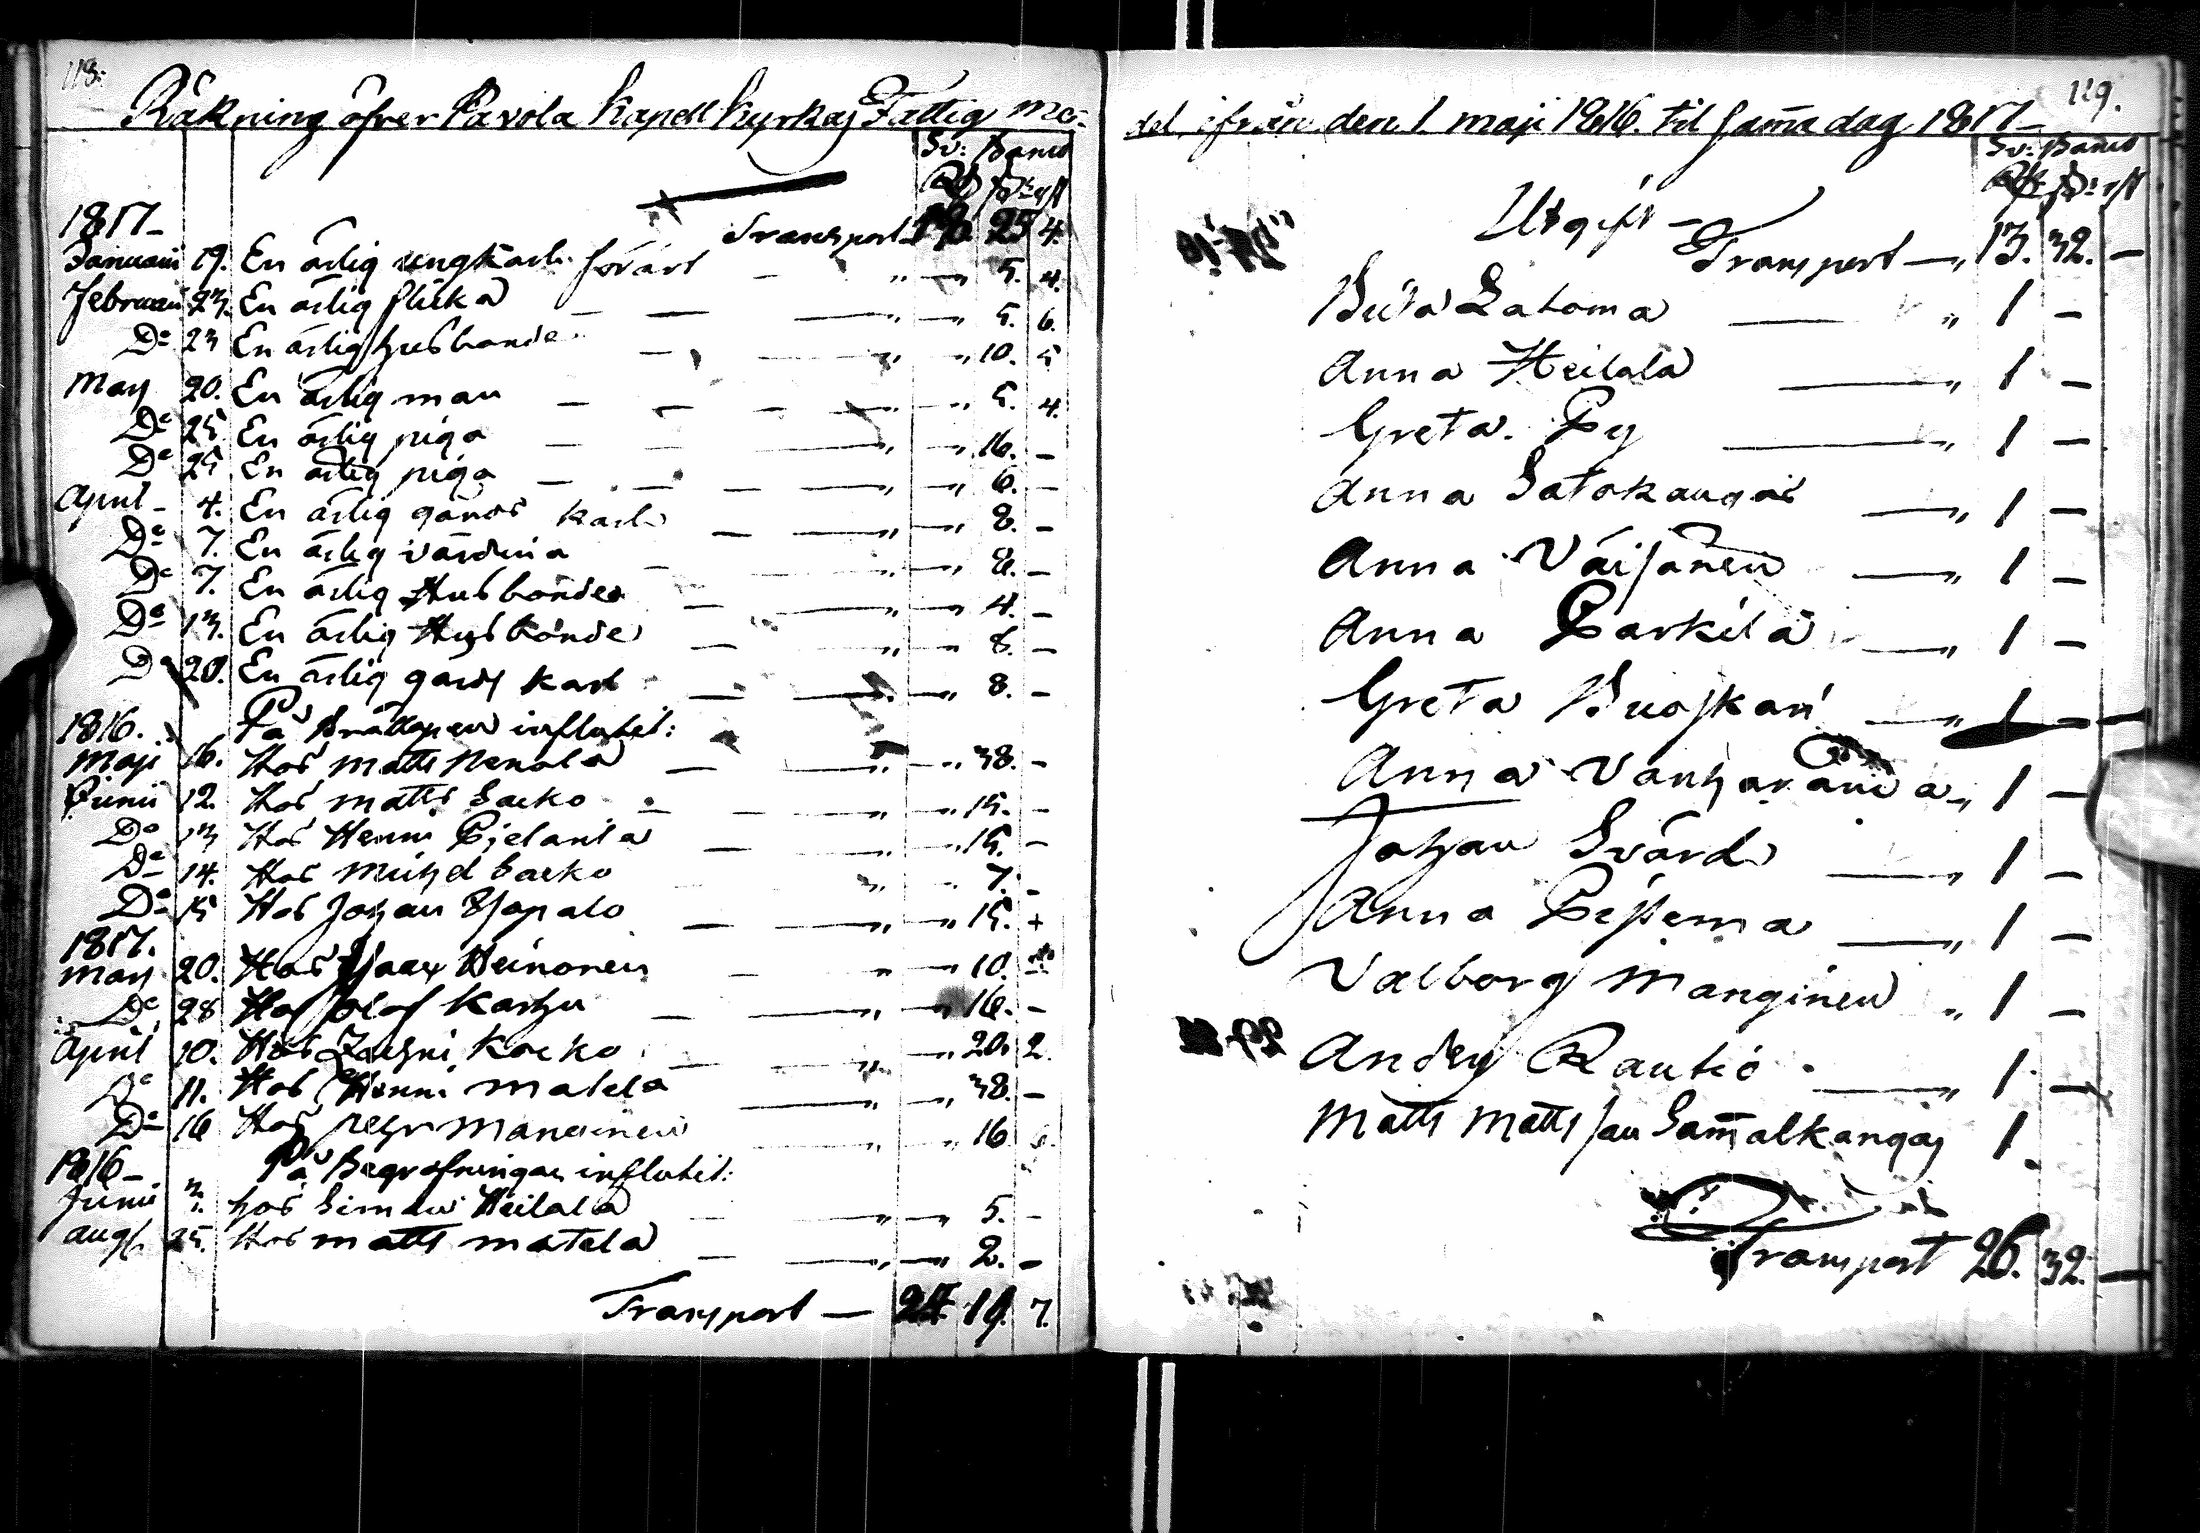 118.
Räkning öfver Pavola Kapell Kyrkas Fattig me-
Sv: Banco
Rd ß rst
1817
Transport 25 4.
Januarii 19. En ärlig ungkarl förärt 5. 4.
Februarii 23. En ärlig flicka 5. 6.
Do 23 En ärlig husbonde 10. 5
Mars 20. En ärlig man 5. 4.
Do 25 En ärlig piga 16. -
Do 25 En ärlig piga 6. -
April 4. En ärlig gårds karl 8. -
Do 7. En ärlig värdinna 8. -
Do 7. En ärlig Husbonde 4. -
Do 13. En ärlig Husbonde 8. -
Do 20. En ärlig gårds karl 8. -
1816. På Bröllopen influtit:
Maji 16. Hos Matts Nenola 38. -
Junii 12. Hos Matts Sarko 15. -
Do 13 Hos Henric Pjelanta 15. -
Do 14. Hos Michel Sarko 7. -
Do 15 Hos Johan Yjopalo 15. +
1817.
Mars 20. Hos Isaac Heinonen 10.
Do 28 Hos Olof Karhu 16. -
April 10. Hos Zachris Korko 20. 2.
Do 11. Hos Henric Matela 38. -
Do 16 Hos Pehr Manginen 16 6.
1816 - På Begrafningar influtit:
Junii 3. hos Simon Heilala 5. -
Augst 25. Hos Matts Matela 2. -
Transport — 24 19. 7.
119.
del, ifrån den 1. Maji 1816. til samma dag 1817 -
Sv: Banco
Rd ß rst
Utgift -
Transport — 13. 32. -
Brita Latoma 1 -
Anna Heilala 1 -
Greta Py 1 -
Anna Satokangas 1 -
Anna Väisänen 1 -
Anna Parkila 1 -
Greta Ruoskari 1 -
Anna Vanhara 1 -
Johan Svärd 1 -
Anna Pispema 1 -
Valborg Manginen 1 -
Anders Rautio 1 -
Matts Mattsson Sammalkangas 1
Transport 26. 32. -